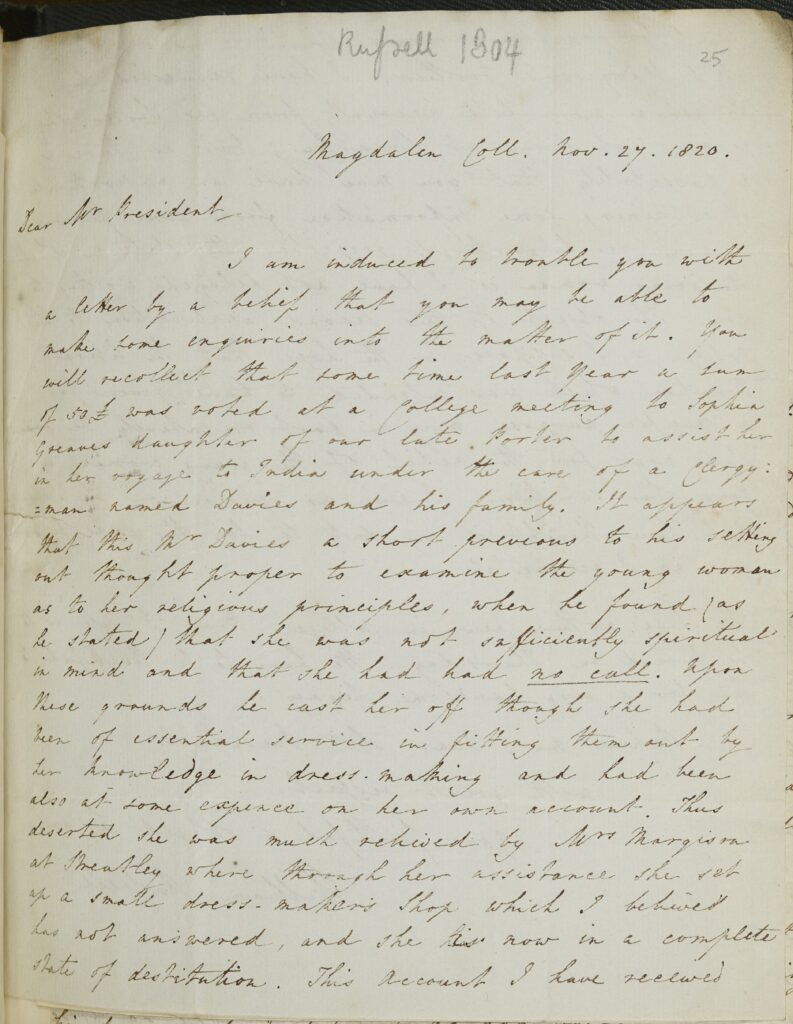 Russell 1804
25
Magdalen Coll. Nov. 27. 1820.
Dear Mr President
I am induced to trouble you with
a letter by a belief that you may be able to
make some enquiries into the matter of it. You
will recollect that some time last Year a sum
of 50£ was voted at a College meeting to Sophia
Greaves daughter of our late Porter to assist her
in her voyage to India under the care of a Clergy:
=man named Davies and his family. It appears
that this Mr Davies a short previous to his setting
out thought proper to examine the young woman
as to her religious principles, when he found (as
he stated) that she was not sufficiently spiritual
in mind and that she had had no call. Upon
these grounds he cast her off though she had
been of essential service in fitting them out by
her knowledge in dress-making and had been
also at some expence on her own account. Thus
deserted she was much relieved by Mrs Margison
at Streatley where through her assistance she set
up a small dress-makers Shop which I believe
has not answered, and she is now in a complete
state of destitution. This Account I have received